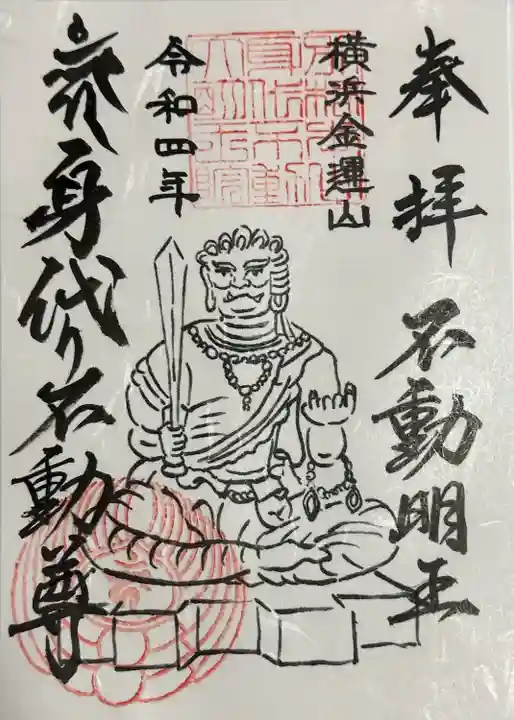 奉拝 不動明王
横浜金運山
令和四年
身代り不動尊